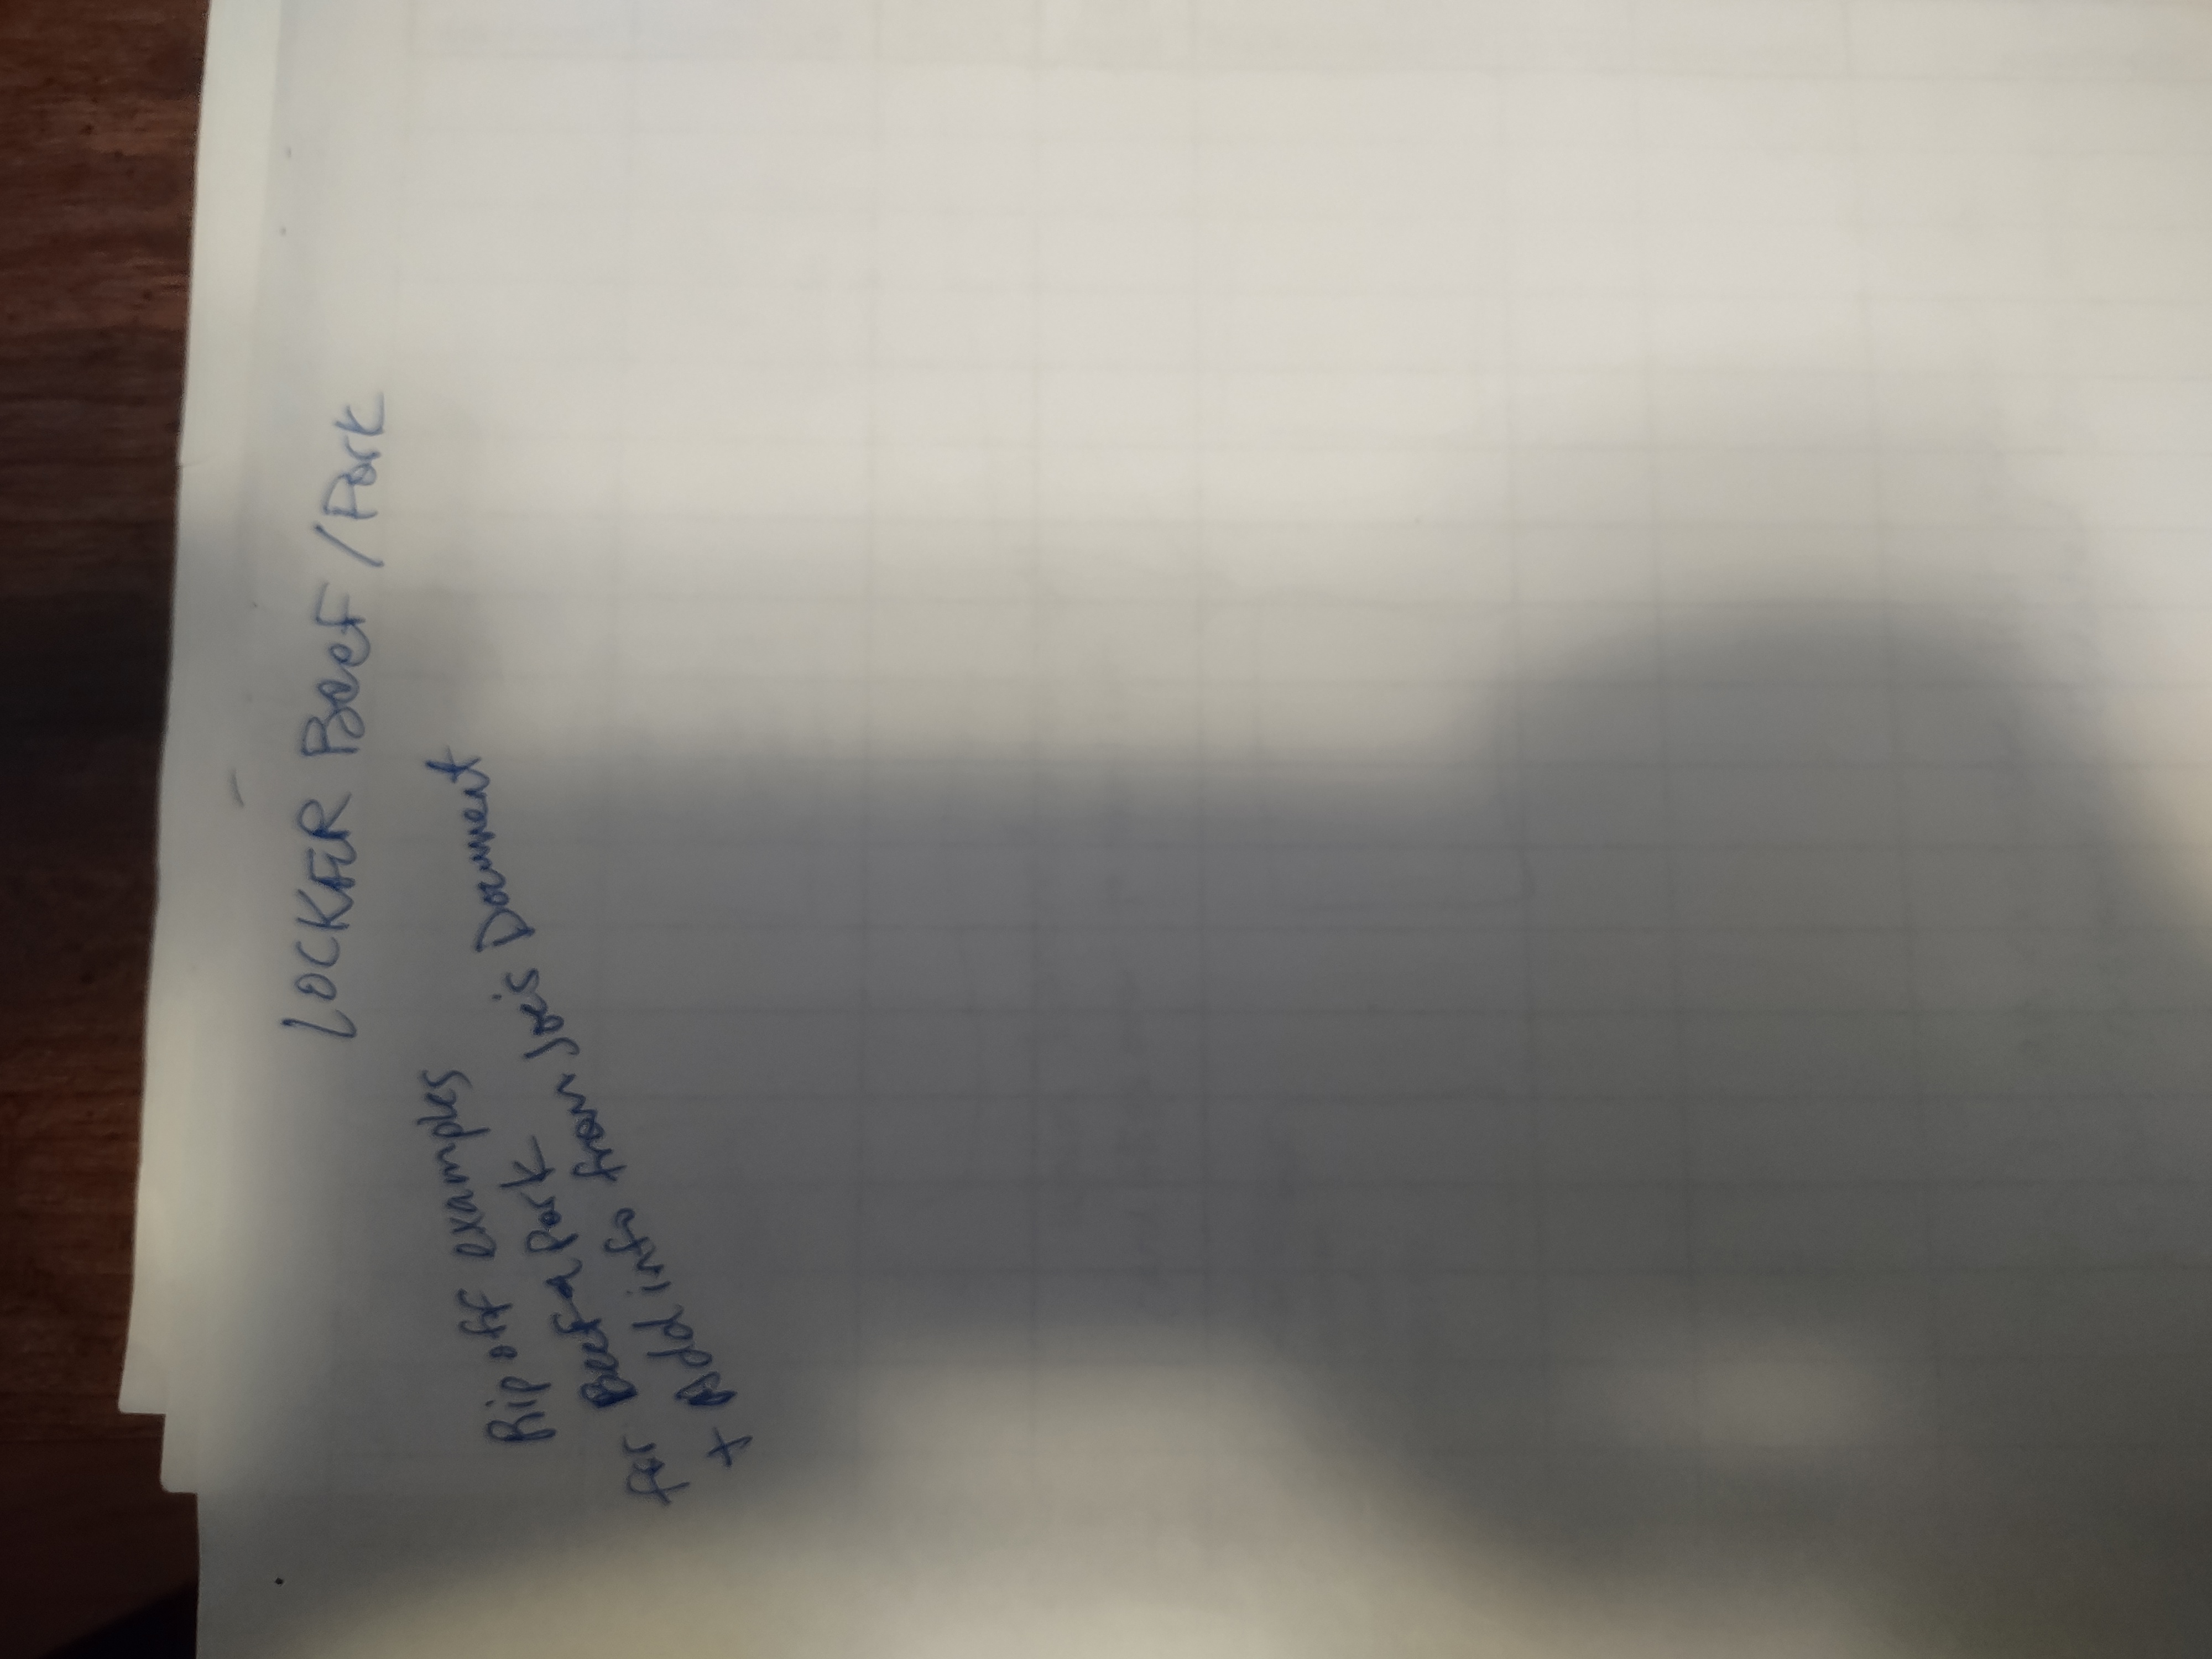 LOCKER Beef / Pork
Rip off examples
for Beef & Pork
+ Add info from Joe's Document